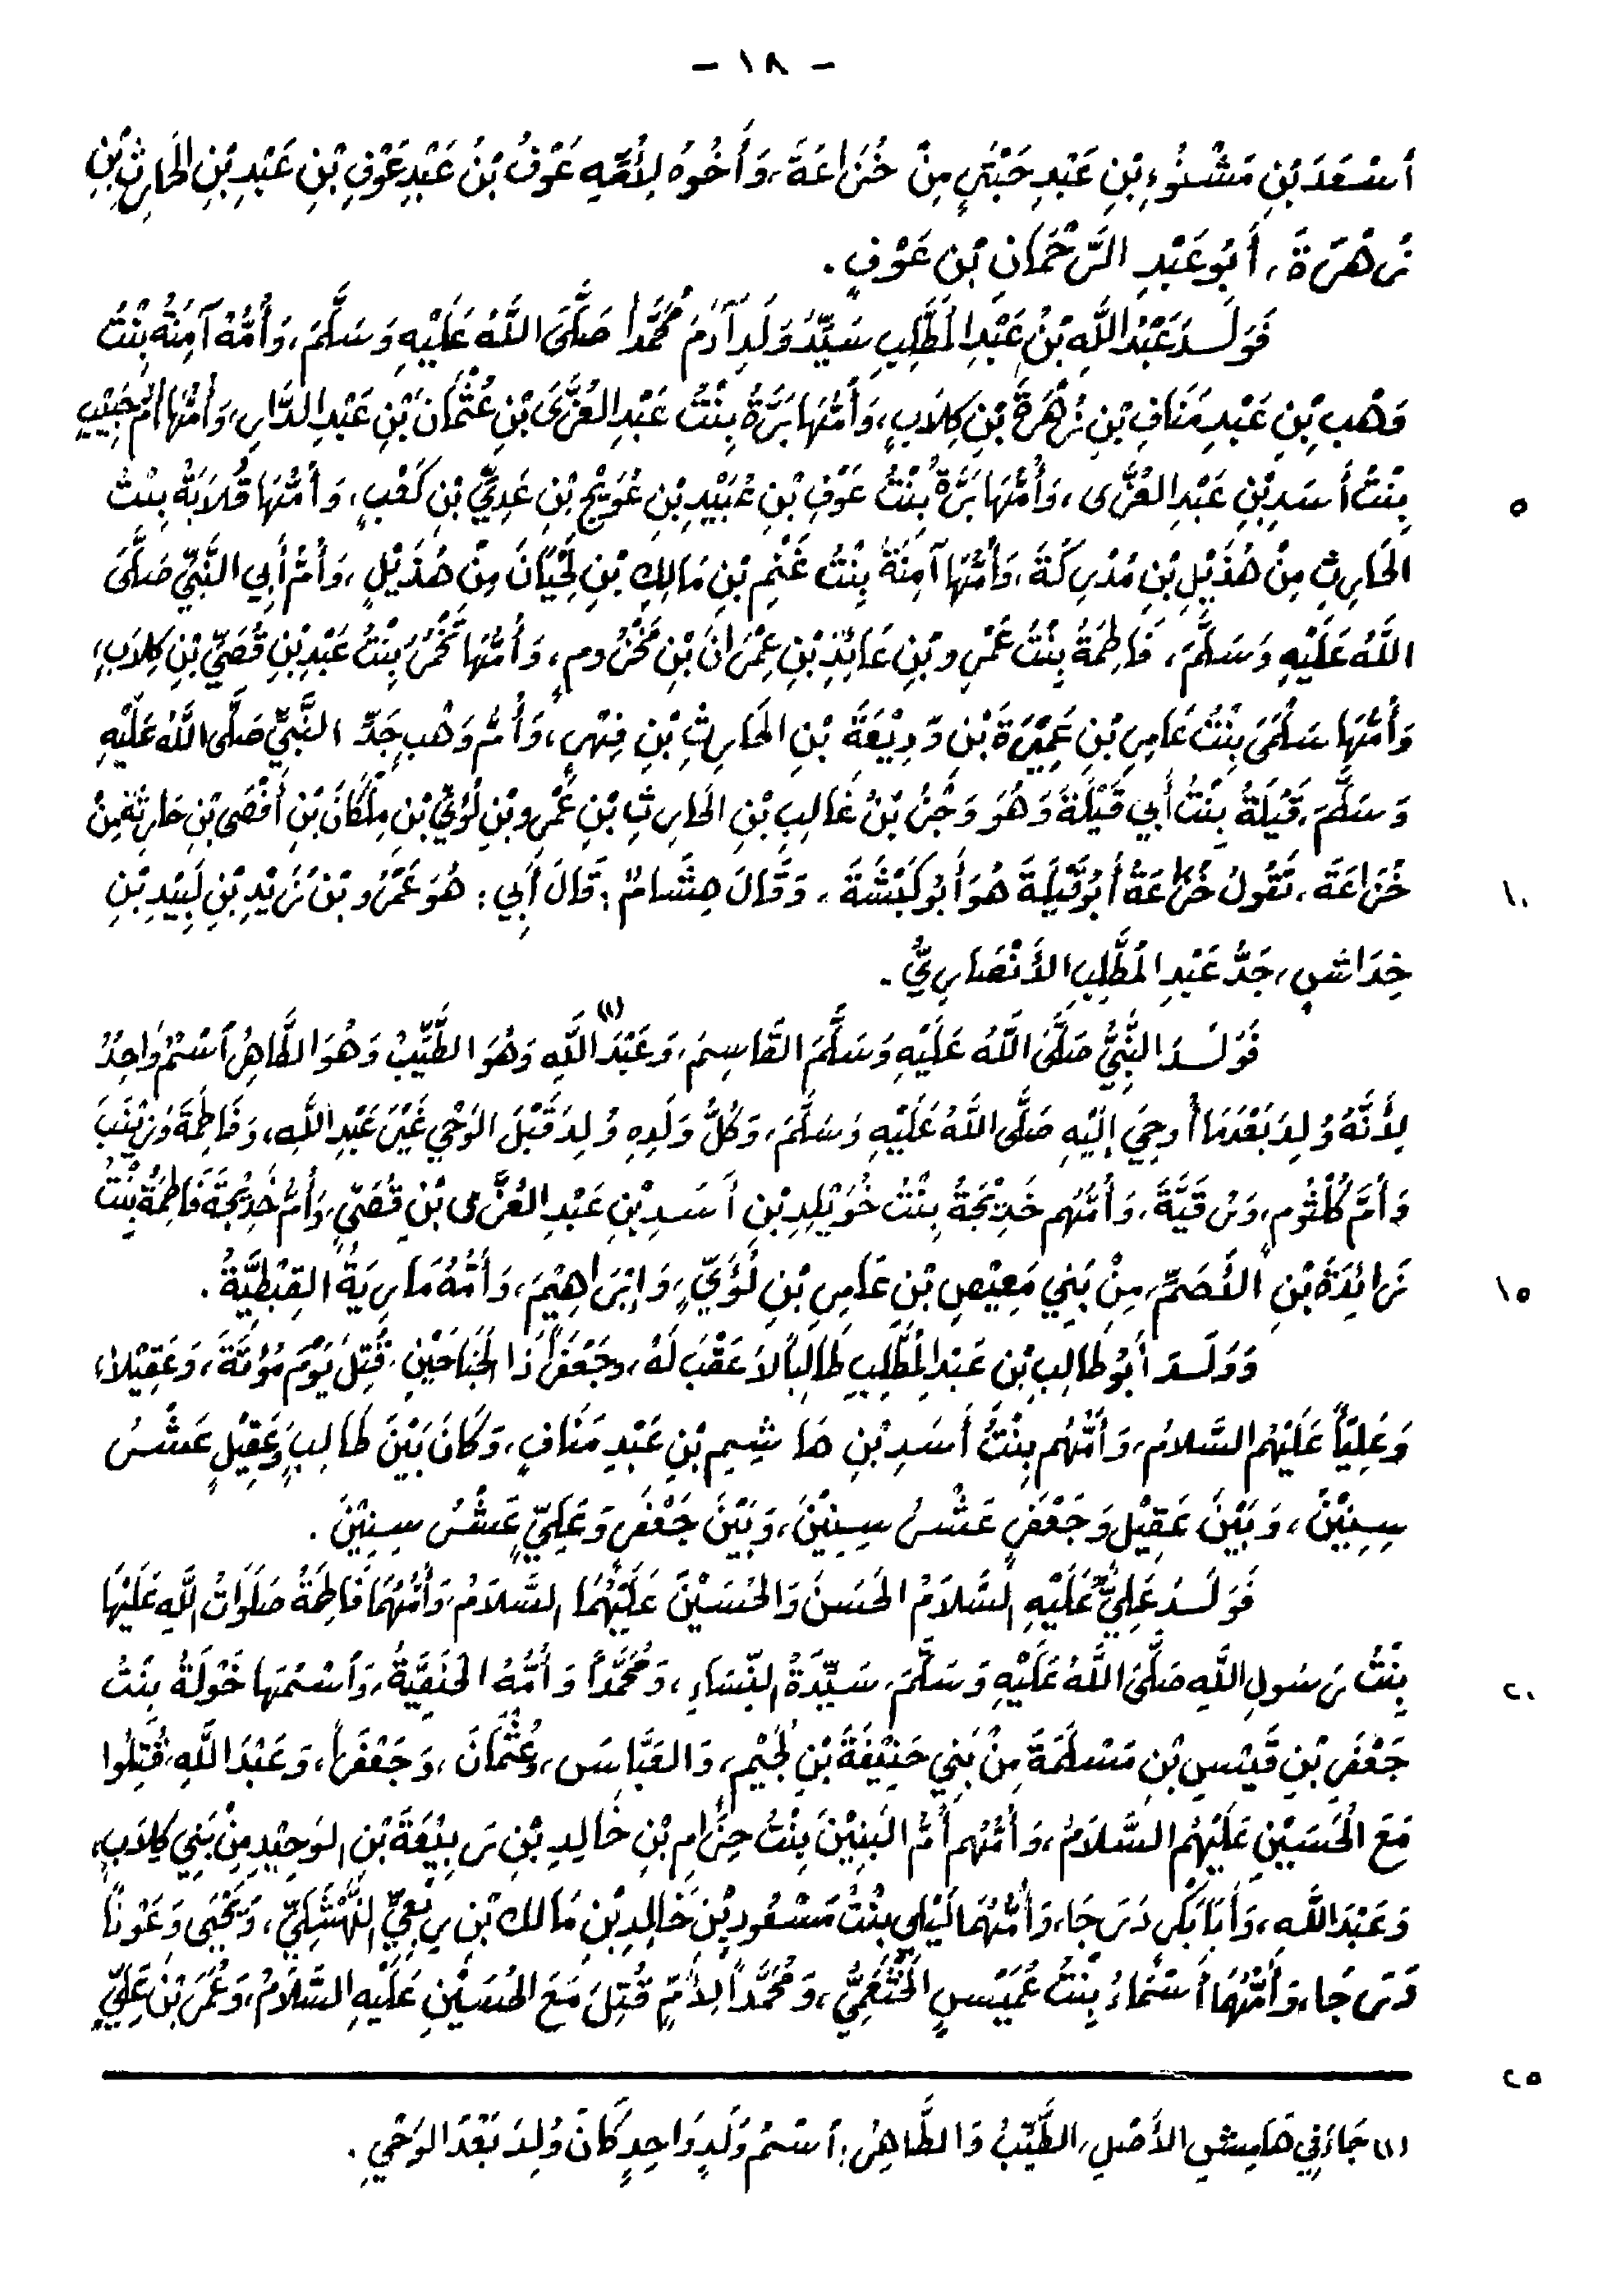 - ١٨ -
أَسْعَدَ بْنِ مَشْنُوءِ بْنِ عَبْدِ حَبْتَرٍ مِنْ خُزَاعَةَ، وَأَخُوهُ لِأُمِّهِ عَوْفُ بْنُ عَبْدِ عَوْفِ بْنِ عَبْدِ بْنِ الحَارِثِ بْنِ
زُهْرَةَ، أَبُو عَبْدِ الرَّحْمَانِ بْنِ عَوْفٍ .
فَوَلَدَ عَبْدُ اللَّهِ بْنُ عَبْدِ المُطَّلِبِ سَيِّدَ وَلَدِ آدَمَ مُحَمَّداً صَلَّى اللَّهُ عَلَيْهِ وَسَلَّمَ، وَأُمُّهُ آمِنَةُ بِنْتُ
وَهْبِ بْنِ عَبْدِ مَنَافِ بْنِ زُهْرَةَ بْنِ كِلَابٍ، وَأُمُّهَا بَرَّةُ بِنْتُ عَبْدِ العُزَّى بْنِ عُثْمَانَ بْنِ عَبْدِ الدَّارِ، وَأُمُّهَا أُمُّ حَبِيْبٍ
بِنْتُ أَسَدِ بْنِ عَبْدِ العُزَّى، وَأُمُّهَا بَرَّةُ بِنْتُ عَوْفِ بْنِ عُبَيْدِ بْنِ عُوَيْجِ بْنِ عَدِيِّ بْنِ كَعْبٍ، وَأُمُّهَا قُلَابَةُ بِنْتُ
٥
الحَارِثِ مِنْ هُذَيْلِ بْنِ مُدْرِكَةَ، وَأُمُّهَا آمِنَةُ بِنْتُ غَنْمِ بْنِ مَالِكِ بْنِ لِحْيَانَ مِنْ هُذَيْلٍ، وَأُمُّ أَبِي النَّبِيِّ صَلَّى
اللَّهُ عَلَيْهِ وَسَلَّمَ، فَاطِمَةُ بِنْتُ عَمْرِو بْنِ عَائِذِ بْنِ عِمْرَانَ بْنِ مَخْزُومٍ، وَأُمُّهَا تَخْمُرُ بِنْتُ عَبْدِ بْنِ قُصَيِّ بْنِ كِلَابٍ،
وَأُمُّهَا سَلْمَى بِنْتُ عَامِرِ بْنِ عَمِيْرَةَ بْنِ وَدِيْعَةَ بْنِ الحَارِثِ بْنِ فِهْرٍ، وَأُمُّ وَهْبِ جَدِّ النَّبِيِّ صَلَّى اللَّهُ عَلَيْهِ
وَسَلَّمَ، قَيْلَةُ بِنْتُ أَبِي قَيْلَةَ وَهُوَ وَجْزُ بْنُ غَالِبِ بْنِ الحَارِثِ بْنِ عَمْرِو بْنِ لُؤَيِّ بْنِ مِلْكَانَ بْنِ أَفْصَى بْنِ حَارِثَةَ مِنْ
خُزَاعَةَ، تَقُولُ خُزَاعَةُ أَبُو قَيْلَةَ هُوَ أَبُو كَبْشَةَ، وَقَالَ هِشَامٌ: قَالَ أَبِي: هُوَ عَمْرُو بْنُ زَيْدِ بْنِ لَبِيْدِ بْنِ
١٠
خِدَاشٍ، جَدُّ عَبْدِ المُطَّلِبِ الأَنْصَارِيُّ .
فَوَلَدَ النَّبِيُّ صَلَّى اللَّهُ عَلَيْهِ وَسَلَّمَ القَاسِمَ، وَعَبْدَ اللَّهِ (١) وَهُوَ الطَّيِّبُ وَهُوَ الطَّاهِرُ اَسْمٌ وَاحِدٌ
لِأَنَّهُ وُلِدَ بَعْدَمَا أُوحِيَ إِلَيْهِ صَلَّى اللَّهُ عَلَيْهِ وَسَلَّمَ، وَكُلُّ وَلَدِهِ وُلِدَ قَبْلَ الوَحْيِ غَيْرَ عَبْدِ اللَّهِ، وَفَاطِمَةَ وَزَيْنَبَ
وَأُمَّ كُلْثُومٍ، وَرُقَيَّةَ، وَأُمُّهُم خَدِيْجَةُ بِنْتُ خُوَيْلِدِ بْنِ أَسَدِ بْنِ عَبْدِ العُزَّى بْنِ قُصَيٍّ، وَأُمُّ خَدِيْجَةَ فَاطِمَةُ بِنْتُ
زَائِدَةَ بْنِ الأَصَمِّ، مِنْ بَنِي مَعِيْصِ بْنِ عَامِرِ بْنِ لُؤَيٍّ، وَإِبْرَاهِيْمَ، وَأُمُّهُ مَارِيَةُ القِبْطِيَّةُ .
١٥
وَوَلَدَ أَبُو طَالِبِ بْنِ عَبْدِ المُطَّلِبِ طَالِباً لاَ عَقْبَ لَهُ، وَجَعْفَراً ذَا الجَنَاحَيْنِ، قُتِلَ يَوْمَ مُؤْتَةَ، وَعَقِيْلاً،
وَعَلِيّاً عَلَيْهُم السَّلَامُ، وَأُمُّهُم بِنْتُ أَسَدِ بْنِ هَاشِمِ بْنِ عَبْدِ مَنَافٍ، وَكَانَ بَيْنَ طَالِبٍ وَعَقِيْلٍ عَشْرُ
سِنِيْنَ، وَبَيْنَ عَقِيْلٍ وَجَعْفَرٍ عَشْرُ سِنِيْنَ، وَبَيْنَ جَعْفَرٍ وَعَلِيٍّ عَشْرُ سِنِيْنَ .
فَوَلَدَ عَلِيٌّ عَلَيْهِ السَّلَامُ الحَسَنَ وَالحُسَيْنَ عَلَيْهُمَا السَّلَامُ، وَأُمُّهُمَا فَاطِمَةُ صَلَوَاتُ اللَّهِ عَلَيْهَا
بِنْتُ رَسُولِ اللَّهِ صَلَّى اللَّهُ عَلَيْهِ وَسَلَّمَ، سَيِّدَةُ النِّسَاءِ، وَمُحَمَّداً وَأُمُّهُ الحَنَفِيَّةُ، وَاَسْمُهَا خَوْلَةُ بِنْتُ
٢٠
جَعْفَرِ بْنِ قَيْسِ بْنِ مَسْلَمَةَ مِنْ بَنِي حَنِيْفَةَ بْنِ لُجَيْمٍ، وَالعَبَّاسَ، وَعُثْمَانَ، وَجَعْفَراً، وَعَبْدَ اللَّهِ، قُتِلُوا
مَعَ الحُسَيْنِ عَلَيْهُم السَّلَامُ، وَأُمُّهُم أُمُّ البَنِيْنَ بِنْتُ حِزَامِ بْنِ خَالِدِ بْنِ رَبِيْعَةَ بْنِ الوَحِيْدِ مِنْ بَنِي كِلَابٍ،
وَعَبْدَ اللَّهِ، وَأَبَا بَكْرٍ دَرَجَا، وَأُمُّهُمَا لَيْلَى بِنْتُ مَسْعُودِ بْنِ خَالِدِ بْنِ مَالِكِ بْنِ رِبْعِيٍّ النَّهْشَلِيِّ، وَيَحْيَى وَعَوْناً
دَرَجَا، وَأُمُّهُمَا أَسْمَاءُ بِنْتُ عُمَيْسٍ الخَثْعَمِيُّ، وَمُحَمَّداً لِأُمٍّ قُتِلَ مَعَ الحُسَيْنِ عَلَيْهِ السَّلَامُ، وَعُمَرَ بْنَ عَلِيٍّ
٢٥
(١) جَاءَ فِي هَامِشِ الأَصْلِ، الطَّيِّبُ وَالطَّاهِرُ: اَسْمُ وَلَدٍ وَاحِدٍ كَانَ وُلِدَ بَعْدَ الوَحْيِ .